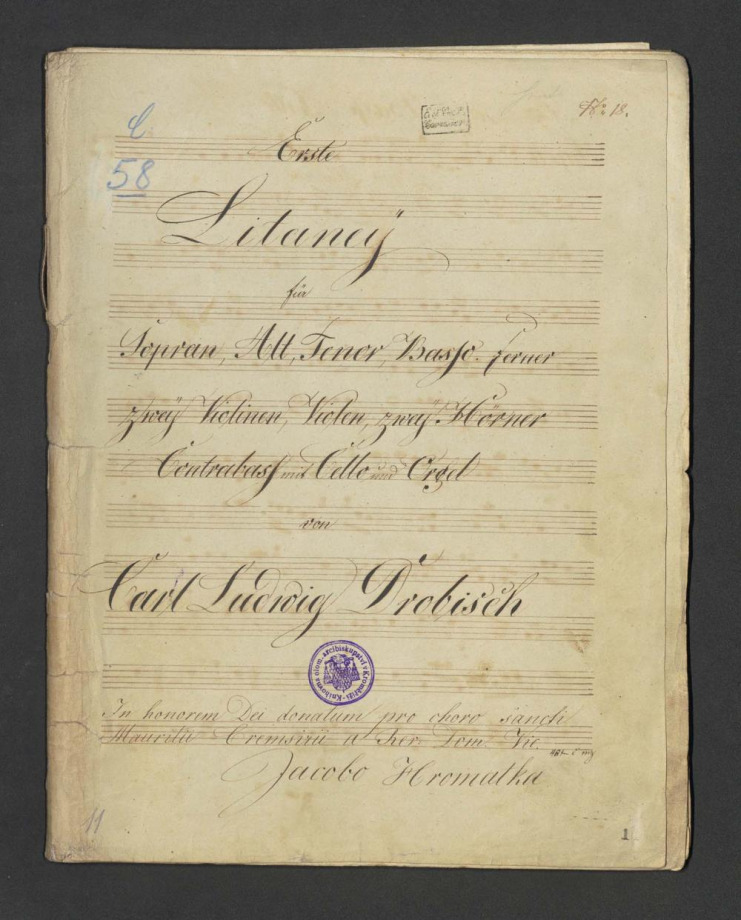 No 18.
C
58
Erste
Litaneÿ
für
Sopran, Alt, Tenor, Basso. ferner
zweÿ Violinen, Violen, zweÿ Hörner
Contrabass mit Cello und Orgel
von
Carl Ludwig Drobisch
Knihovna olom. arcibiskupství v Kroměříži
In honorem Dei donatum pro choro sancti
Mauritii Cremsirii a Rev. Dom. Vic.
Jacobo Hromatka
11
1